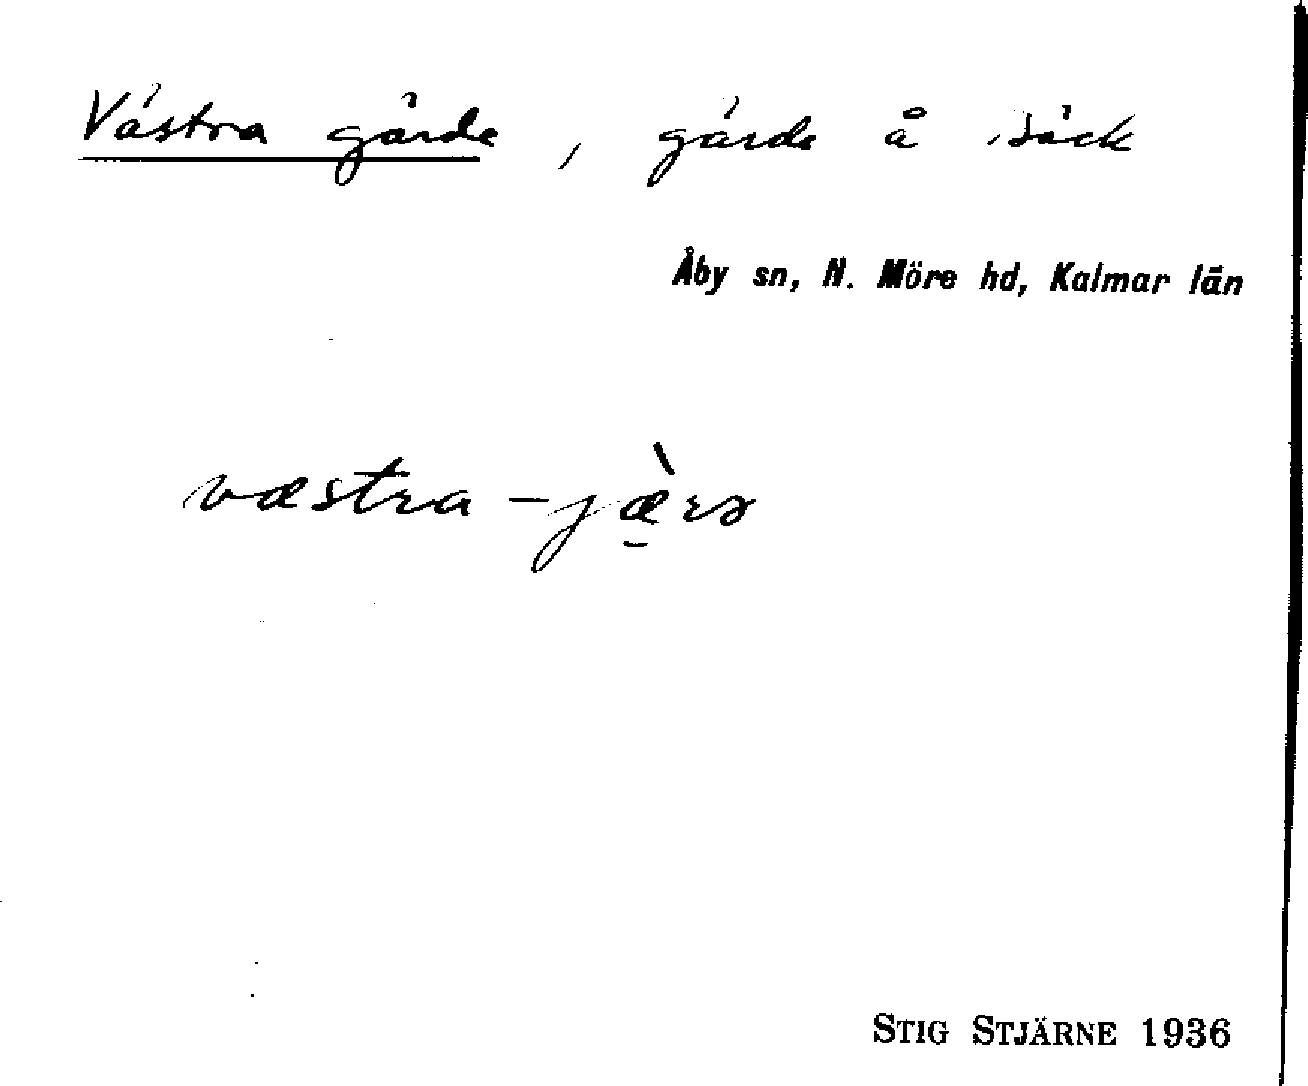 Västra gärde, gärde å Säck
Åby sn, N. Möre hd, Kalmar län
væstra-jæ̠̀rə
STIG STJÄRNE 1936